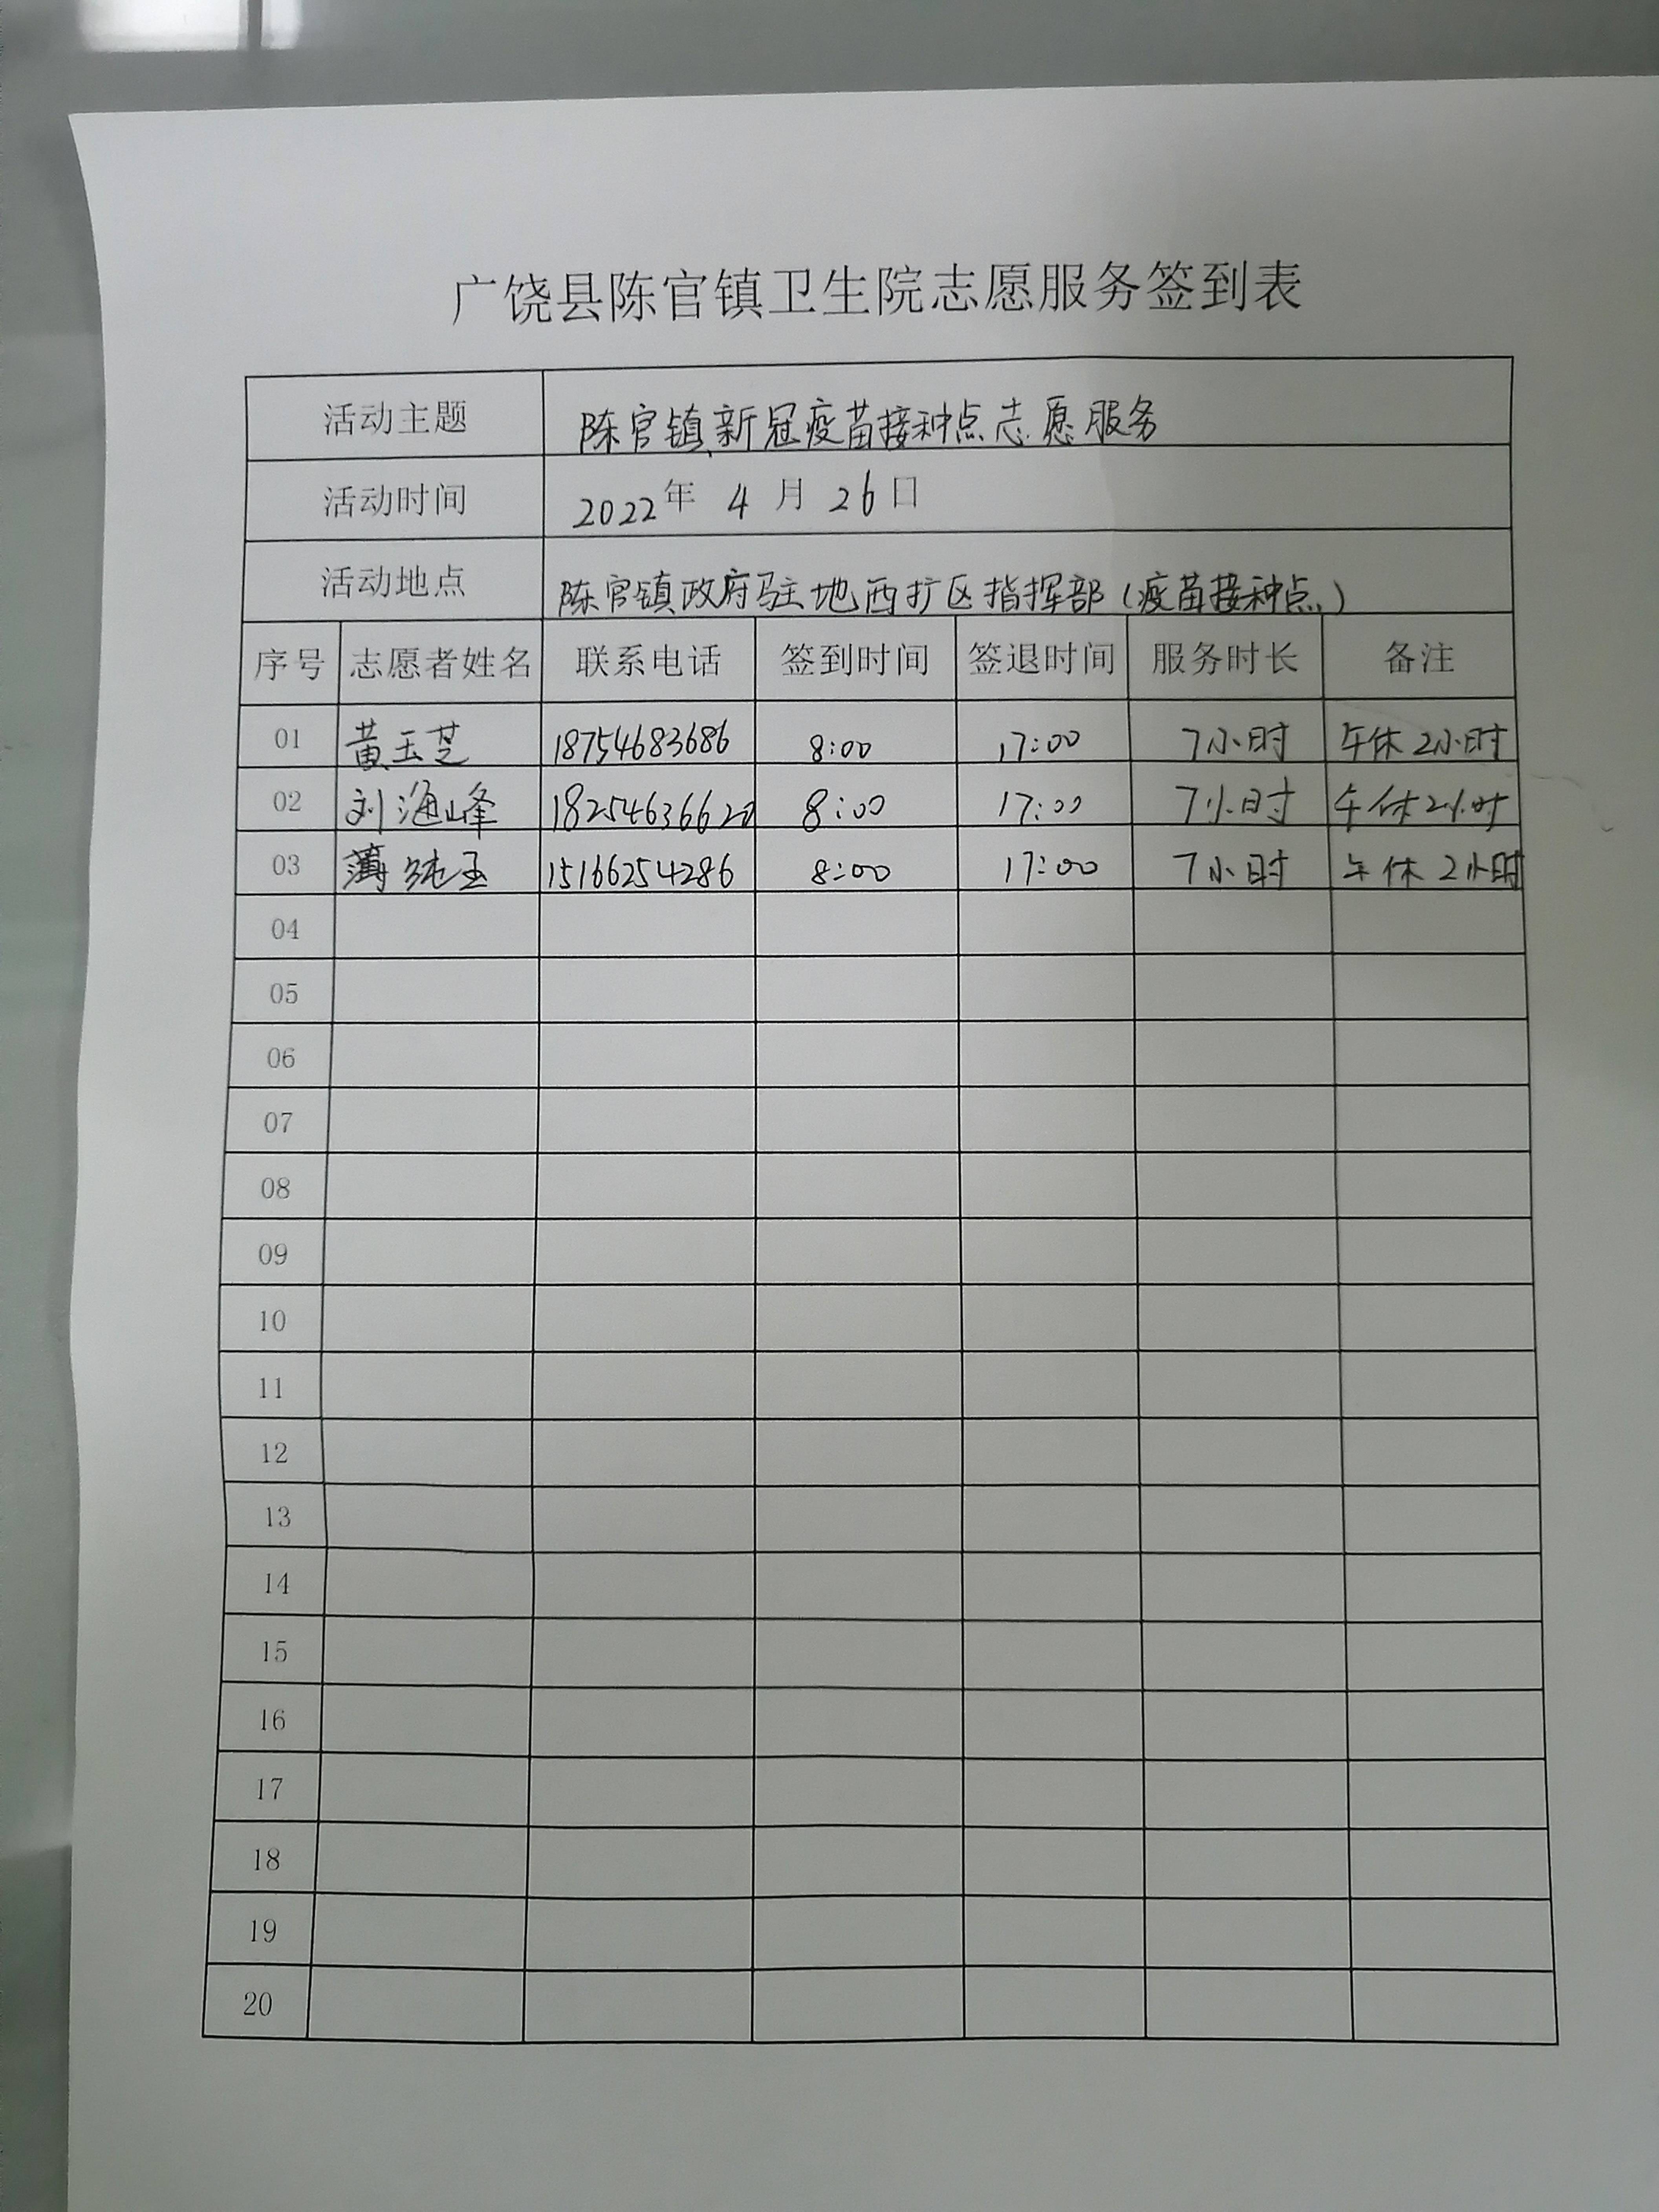 广饶县陈官镇卫生院志愿服务签到表
活动主题 陈官镇新冠疫苗接种点志愿服务
活动时间 2022年 4 月 26日
活动地点 陈官镇政府驻地西扩区指挥部(疫苗接种点)
序号 志愿者姓名 联系电话 签到时间 签退时间 服务时长 备注
01 黄玉芝 18754683686 8:00 17:00 7小时 午休2小时
02 刘海峰 8:00 17:00 7小时 午休2小时
03 薄纯玉 15166254286 8:00 17:00 7小时 午休2小时
04
05
06
07
08
09
10
11
12
13
14
15
16
17
18
19
20